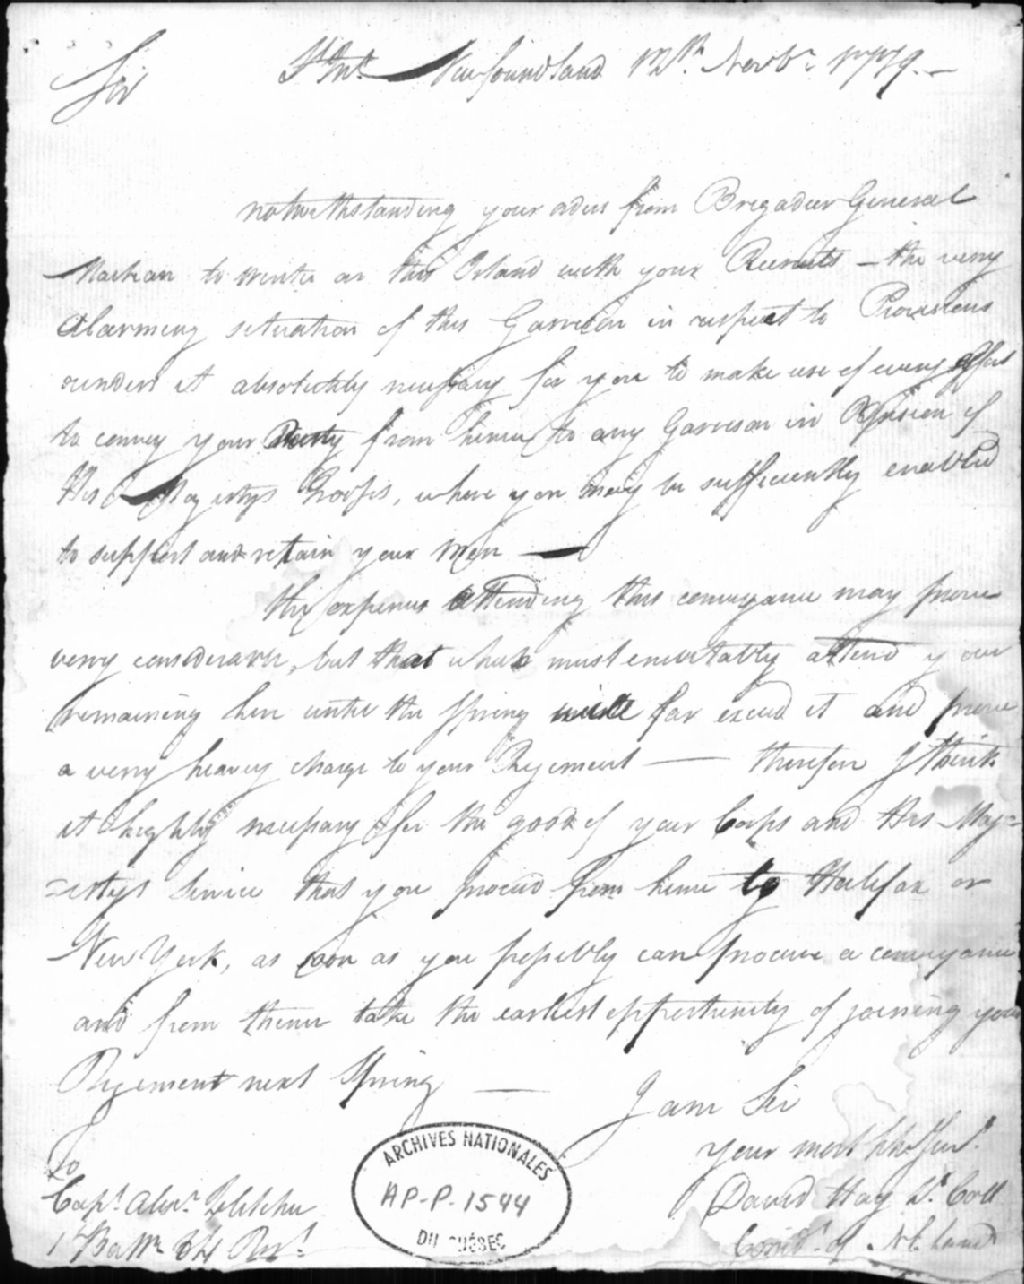 Sir St Jns Newfoundland 12th. Novbr. 1779. –
notwithstanding your orders from Brigadier General
Maclean to winter on this Island with your Recruits – the very
alarming situation of this Garrison in respect to Provisions
renders it absolutely necessary for you to make use of every effort
to convey your Party from hence to any Garrison in Possession of
His Majestys Troops, where you may be sufficiently enabled
to support and retain your Men —
the expence attending this conveyance may prove
very considerable, but that which must enevitably attend your
remaining here untill the Spring will far exceed it and prove
a very heavy charge to your Regement — therefore I think
it highly necessary for the good of your Corps and His Maj=
=estys Service that you proceed from hence to Halifax or
New York, as soon as you possibly can procure a conveyance
and from thence take the earliest opportunity of joining your
Regement next Spring —
I am Sir
your most
David Hay Lt. Coll
of Nd land
To
Capt. Alexr.
1 Battn 84 Regt.
ARCHIVES NATIONALES
AP-P-1544
DU QUÉBEC